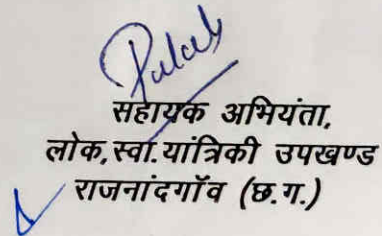 सहायक अभियंता,
लोक.स्वा.यांत्रिकी उपखण्ड
राजनांदगॉव (छ.ग.)